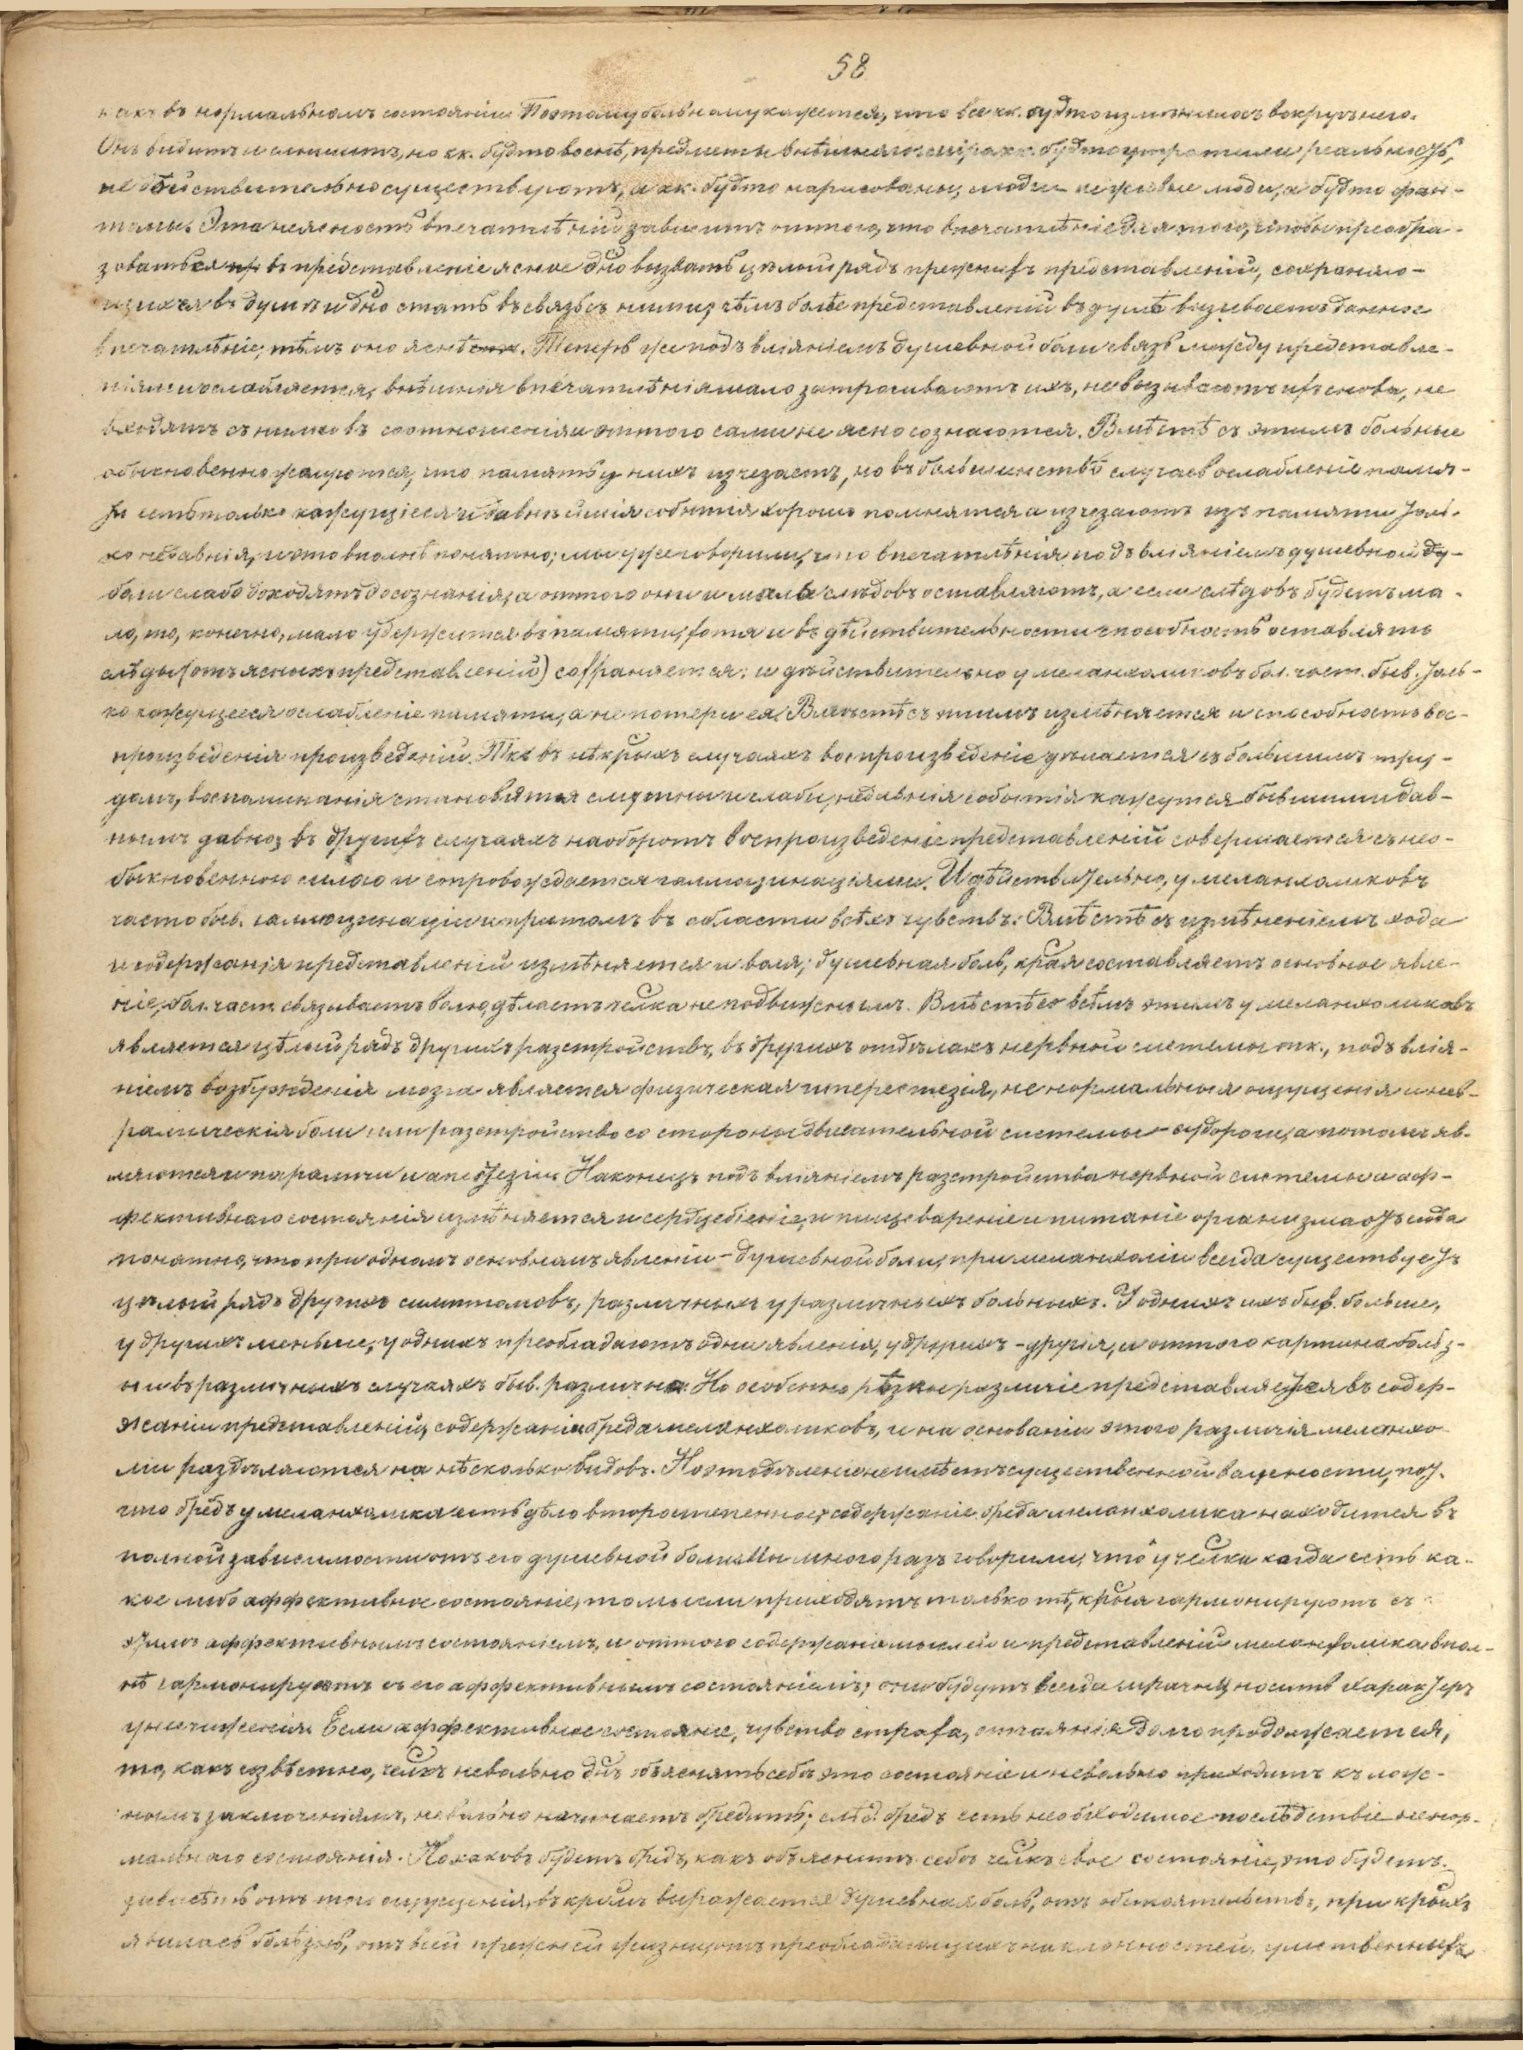 58
какъ въ нормальномъ состояніи. Поэтому больному кажется, что все кк. будто измѣнилось вокругъ него.
Онъ видитъ и слышитъ, но кк. будто во снѣ, предметы внѣшняго міра кк. будто утратили реальность,
не дѣйствительно существуютъ, а кк. будто нарисованы, люди не живые люди, а будто фан-
томы. Эта неясность впечатлѣній зависитъ оттого, что впечатлѣніе для того, чтобы преобра-
зоваться въ представленіе ясное дно вызвать цѣлый рядъ прежнихъ представленій, сохраняю-
щихся въ душѣ и дно стать въ связь съ ними; чѣмъ болѣе представленій въ душѣ вызываетъ данное
впечатлѣніе, тѣмъ оно яснѣе. Теперь же подъ вліяніемъ душевной боли связь между представле-
ніями ослабляется, внѣшнія впечатлѣнія мало затрогиваютъ ихъ, не вызываютъ ихъ снова, не
входятъ съ ними въ соотношенія и оттого сами не ясно сознаются. Вмѣстѣ съ этимъ больные
обыкновенно жалуются, что память у нихъ изчезаетъ, но въ большинствѣ случаевъ ослабленіе памя-
ти есть только кажущееся и давнѣйшія событія хорошо помнятся а изчезаютъ изъ памяти толь-
ко недавнія, и это вполнѣ понятно; мы уже говорили, что впечатлѣнія подъ вліяніемъ душевной
боли слабо доходятъ до сознанія, а оттого они и мало слѣдовъ оставляютъ, а если слѣдовъ будетъ ма-
ло, то, конечно, мало удержится въ памяти, хотя и въ дѣйствительности способность оставлять
слѣды (отъ ясныхъ представленій) сохраняется; и дѣйствительно у меланхоликовъ бол. част. быв. толь-
ко кажущееся ослабленіе памяти, а не потеря ея. Вмѣстѣ съ этимъ измѣняется и способность вос-
произведенія произведеній. Ткъ въ нѣкрыхъ случаяхъ воспроизведеніе дѣлается съ большимъ тру-
домъ, воспоминанія становятся смутны и слабы, недавнія событія кажутся бывшими дав-
нымъ давно, въ другихъ случаяхъ наоборотъ воспроизведеніе представленій совершается съ нео-
быкновенною силою и сопровождается галлюцинаціями. И дѣйствительно, у меланхоликовъ
часто быв. галлюцинаціи и притомъ въ области всѣхъ чувствъ. Вмѣстѣ съ измѣненіемъ хода
и содержанія представленій измѣняется и воля; душевная боль, края составляетъ основное явле-
ніе, бол. част. связываетъ волю, дѣлаетъ челка неподвижнымъ. Вмѣстѣ со всѣмъ этимъ у меланхоликовъ
является цѣлый рядъ другихъ разстройствъ, въ другихъ отдѣлахъ нервной системы тк., подъ влія-
ніемъ возбужденія мозга является физическая гиперестезія, не нормальныя ощущенія и нев-
ралгическія боли или разстройство со стороны двигательной системы – судороги, а потомъ яв-
ляются и параличи и анестезіи. Наконецъ подъ вліяніемъ разстройства нервной системы и аф-
фективнаго состоянія измѣняется и сердцебіеніе, и пищевареніе и питаніе организма отсюда
понятно, что при одномъ основномъ явленіи – душевной боли, при меланхоліи всегда существуетъ
цѣлый рядъ другихъ симптомовъ, различныхъ у различныхъ больныхъ. У однихъ ихъ быв. больше,
у другихъ меньше, у однихъ преобладаютъ одни явленія, у другихъ – другія, и оттого картина болѣз-
ни въ различныхъ случаяхъ быв. различна. Но особенно рѣзкое различіе представляется въ содер-
жаніи представленій, содержаніи бреда меланхоликовъ, и на основаніи этого различія меланхо-
ліи раздѣляются на нѣсколько видовъ. Но это дѣленіе не имѣетъ существенной важности, пот.
что бредъ у меланхолика есть дѣло второстепенное; содержаніе бреда меланхолика находится въ
полной зависимости отъ его душевной боли. Мы много разъ говорили, что у челка когда есть ка-
кое либо аффективное состояніе, то мысли приходятъ только тѣ, крыя гармонируютъ съ
этимъ аффективнымъ состояніемъ, и оттого содержаніе мыслей и представленій меланхолика впол-
нѣ гармонируетъ съ его аффективнымъ состояніемъ; они будутъ всегда мрачны, носить характеръ
униженія. Если аффективное состояніе, чувство страха, отчаянія долго продолжается,
то, какъ извѣстно, челкъ невольно днъ объяснять себѣ это состояніе и невольно приходитъ къ лож-
нымъ заключеніямъ, невольно начинаетъ бредить; слѣд. бредъ есть необходимое послѣдствіе ненор-
мальнаго состоянія. Но каковъ будетъ бредъ, какъ объяснитъ себѣ челкъ свое состояніе, это будетъ
зависѣть отъ того ощущенія, въ кромъ выражается душевная боль, отъ обстоятельствъ, при крыхъ
явилась болѣзнь, отъ всей прежней жизни, отъ преобладающихъ наклонностей, умственныхъ